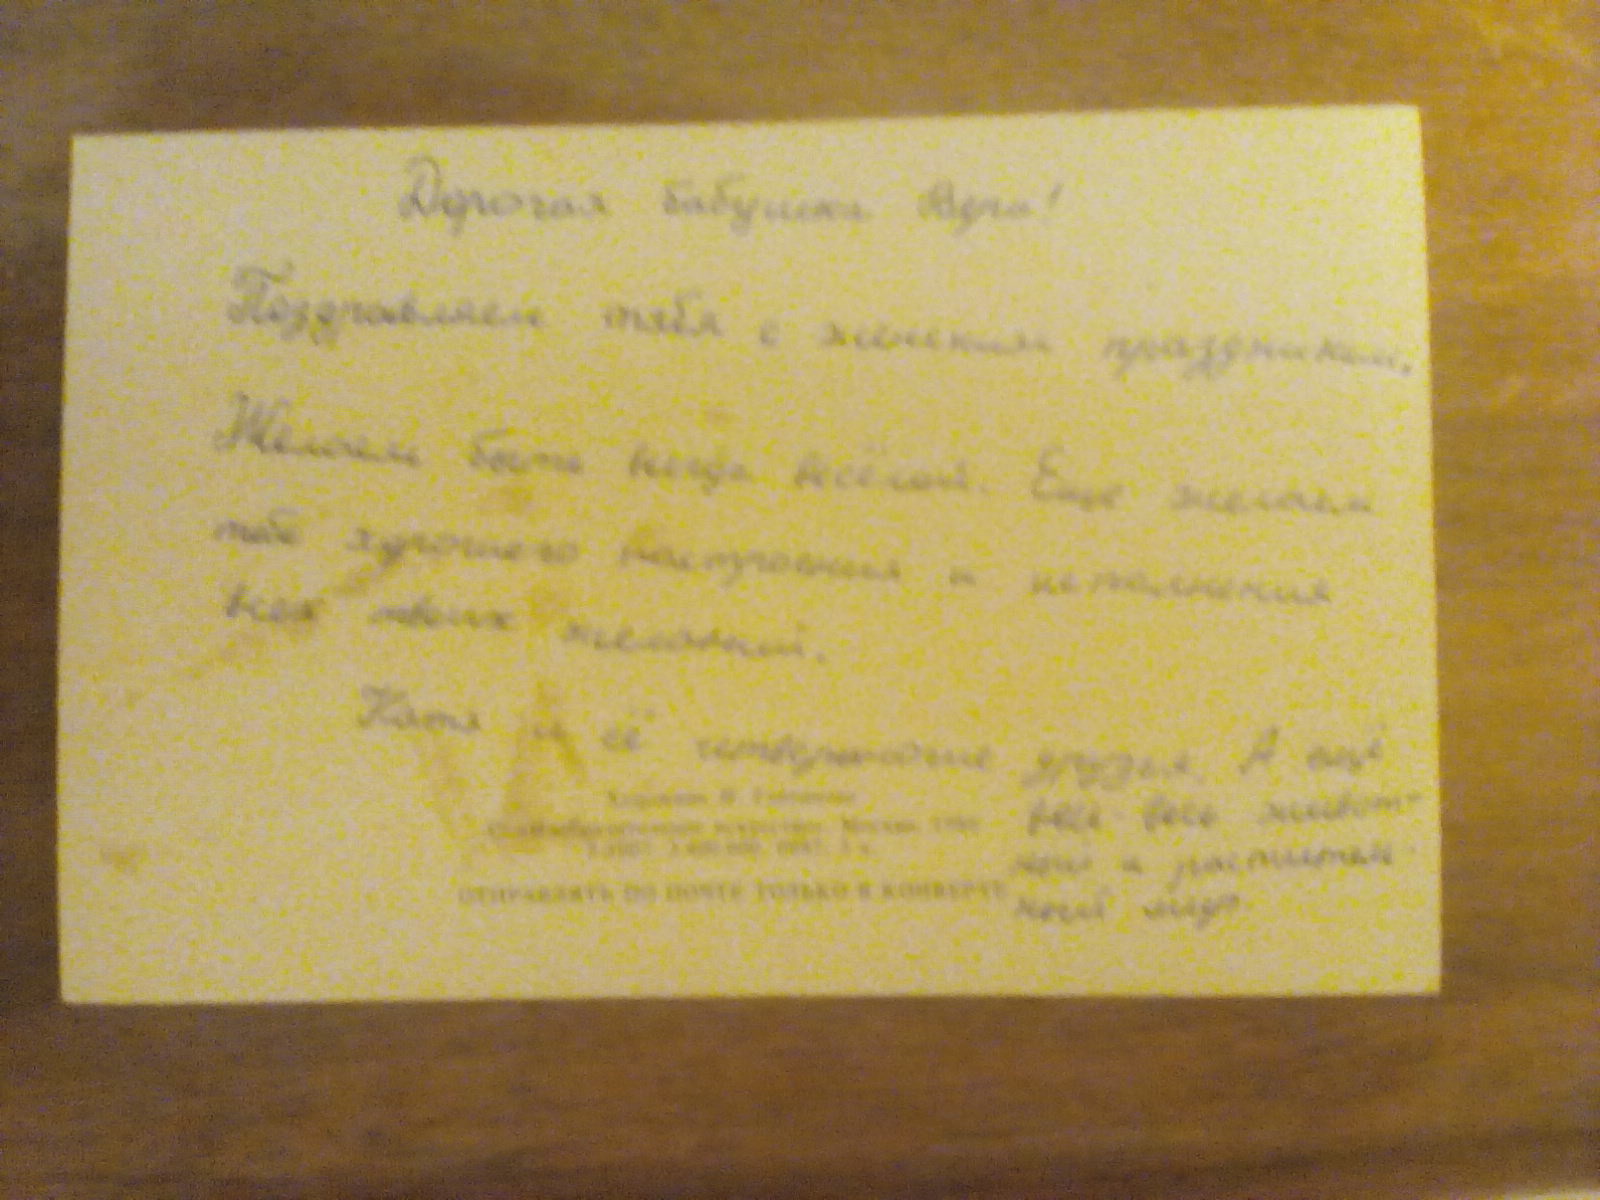 Дорогая бабушка Вера!
Поздравляем тебя с женским праздником.
Желаем быть всегда весёлой. Еще желаем
тебе хорошего настроения и исполнения
всех твоих желаний.
Катя и её четвероногие друзья. А ещё
весь-весь живот-
ный и раститель-
ный мир.
Художник
искусство. Москва.
ОТПРАВЛЯТЬ ПО ПОЧТЕ ТОЛЬКО В КОНВЕРТЕ